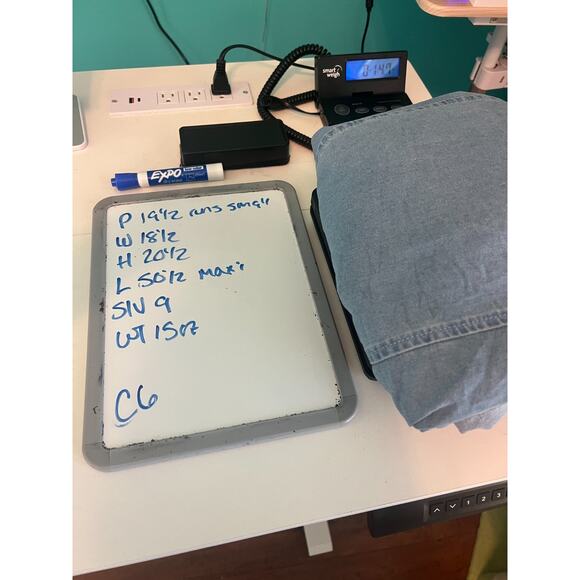 smart
weigh
0-14.7
EXPO
P 19 1/2 runs small
W 18 1/2
H 20 1/2
L 50 1/2 maxi
S/V 9
WT 15oz
C6
1 2 3